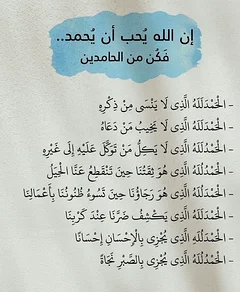 إن الله يُحب أن يُحمد..
فَكُن من الحامدين
- الْحَمْدُلَلَّهِ الَّذِى لَا يَنْسَى مِنْ ذِكْرِهِ
- الْحَمْدُلَلَّهِ الَّذِى لَا يَخِيبُ مَنْ دَعَاهُ
- الْحَمْدُلَلَّهِ الَّذِى لَا يَكِلُ مَنْ تَوَكَّلَ عَلَيْهِ إِلَى غَيْرِهِ
- الْحَمْدُلَلَّهِ الَّذِى هُوَ ثِقَتُنَا حِينَ تَنْقَطِعُ عَنَّا الْحِيَلُ
- الْحَمْدُلَلَّهِ الَّذِى هُوَ رَجَاؤُنَا حِينَ تَسُوءُ ظُنُونُنَا بِأَعْمَالِنَا
- الْحَمْدُلَلَّهِ الَّذِى يَكْشِفُ ضُرَّنَا عِنْدَ كَرْبِنَا
- الْحَمْدُلَلَّهِ الَّذِى يُجْزِى بِالْإِحْسَانِ إِحْسَانًا
- الْحَمْدُلَلَّهِ الَّذِى يُجْزِى بِالصَّبْرِ نَجَاةً